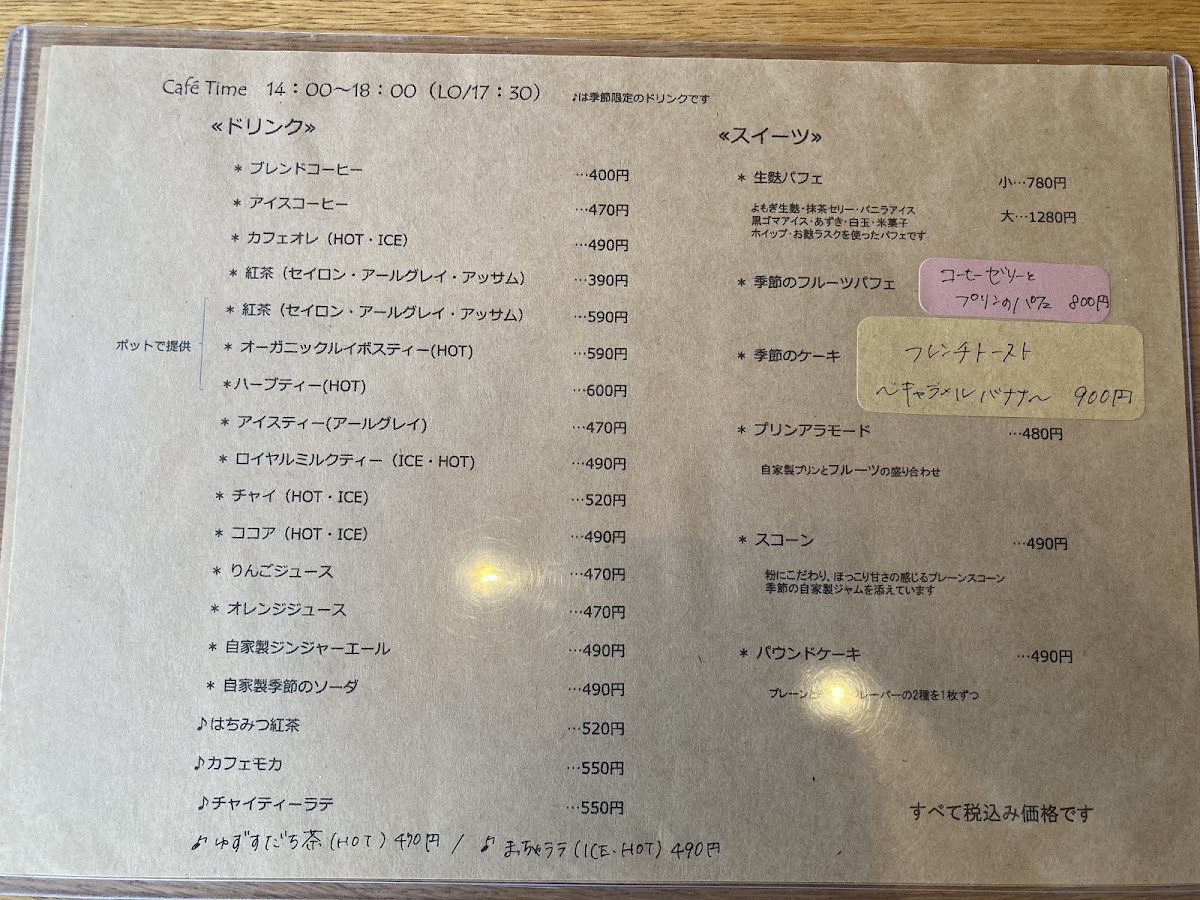 Café Time 14：00～18：00（LO/17：30）
♪は季節限定のドリンクです
≪ドリンク≫
＊ ブレンドコーヒー …400円
＊ アイスコーヒー …470円
＊ カフェオレ（HOT・ICE） …490円
＊ 紅茶（セイロン・アールグレイ・アッサム） …390円
＊ 紅茶（セイロン・アールグレイ・アッサム） …590円
ポットで提供
＊ オーガニックルイボスティー(HOT) …590円
＊ハーブティー(HOT) …600円
＊ アイスティー(アールグレイ) …470円
＊ ロイヤルミルクティー（ICE・HOT） …490円
＊ チャイ（HOT・ICE） …520円
＊ ココア（HOT・ICE） …490円
＊ りんごジュース …470円
＊ オレンジジュース …470円
＊ 自家製ジンジャーエール …490円
＊ 自家製季節のソーダ …490円
♪はちみつ紅茶 …520円
♪カフェモカ …550円
♪チャイティーラテ …550円
♪ゆずすだち茶(HOT) 470円 / ♪まっちゃラテ(ICE・HOT) 490円
≪スイーツ≫
＊ 生麩パフェ 小…780円
大…1280円
よもぎ生麩・抹茶ゼリー・バニラアイス
黒ゴマアイス・あずき・白玉・米菓子
ホイップ・お麩ラスクを使ったパフェです
＊ 季節のフルーツパフェ
コーヒーゼリーと
プリンのパフェ 800円
＊ 季節のケーキ
フレンチトースト
～キャラメルバナナ～ 900円
＊ プリンアラモード …480円
自家製プリンとフルーツの盛り合わせ
＊ スコーン …490円
粉にこだわり、ほっこり甘さの感じるプレーンスコーン
季節の自家製ジャムを添えています
＊ パウンドケーキ …490円
プレーンと レーバーの2種を1枚ずつ
すべて税込み価格です